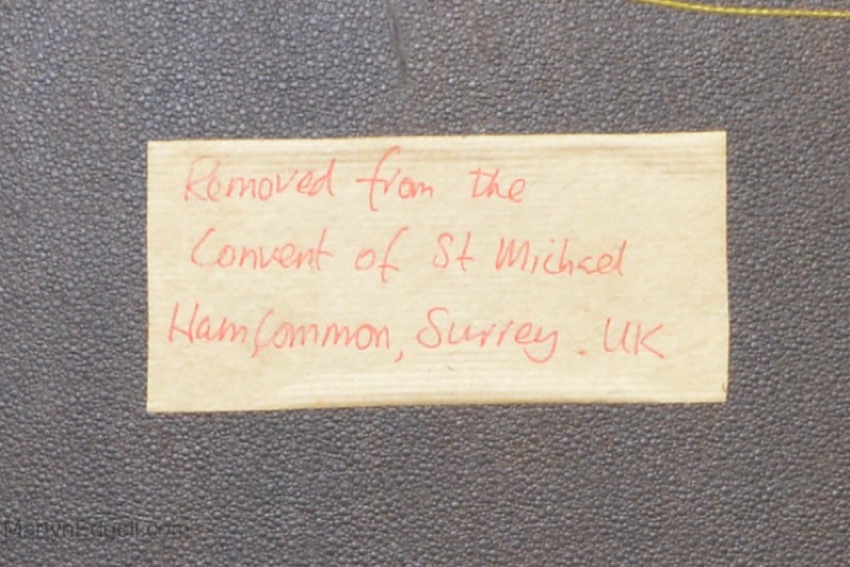 Removed from the
Convent of St Michael
Ham Common, Surrey. UK
MartynEdgell.com